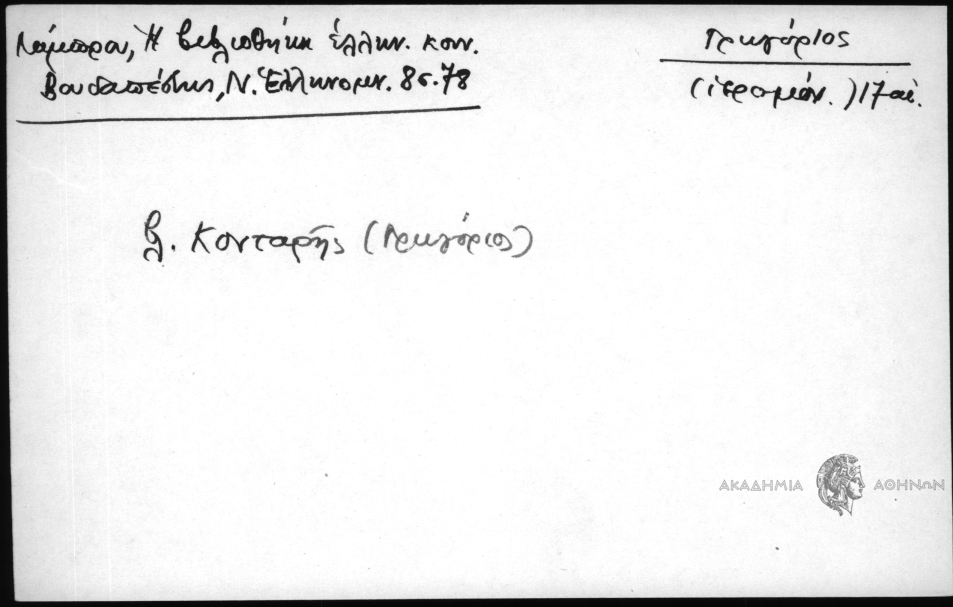 Λάμπρου, Ἡ βιβλιοθήκη ἑλλην. κοιν.
Βουδαπέστης, Ν. Ἑλληνομν. 8 σ. 78
Γρηγόριος
(ἱερομόν.) 17 αἰ.
βλ. Κονταρῆς (Γρηγόριος)
ΑΚΑΔΗΜΙΑ ΑΘΗΝΩΝ